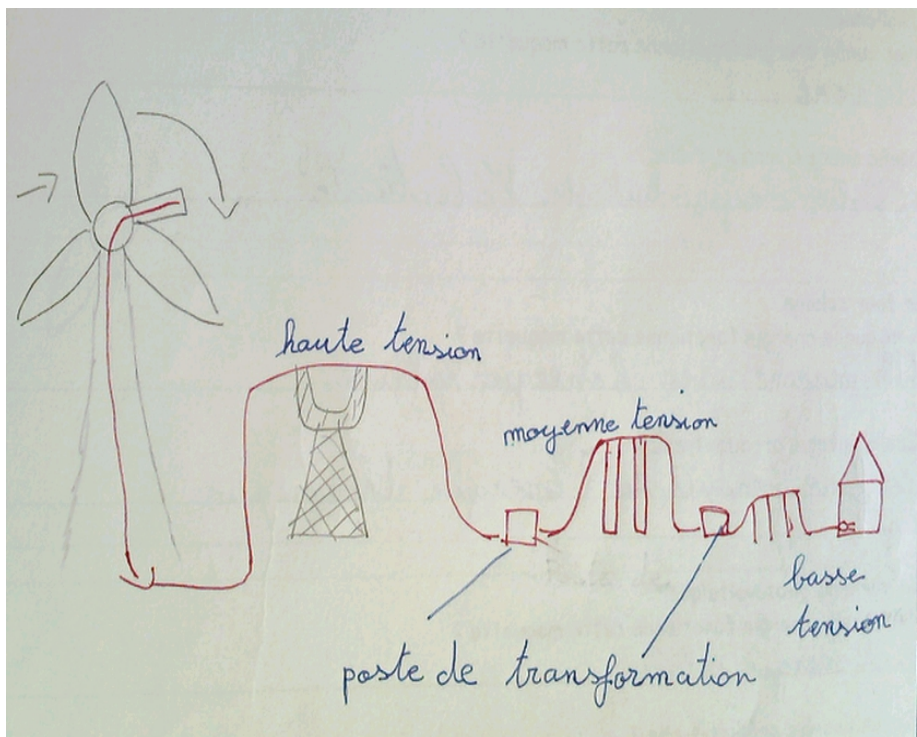 haute tension
moyenne tension
basse
tension
poste de transformation